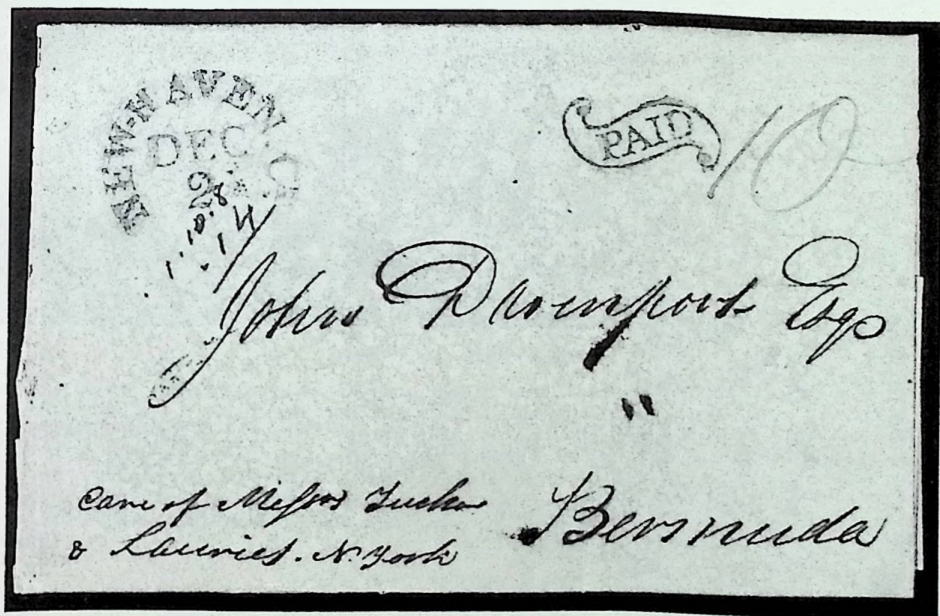 NEW-HAVEN. C
DEC
2
PAID 10
14
John Davenport Esqr
"
Care of Messrs Tucker
& Lauries. N. York
Bermuda